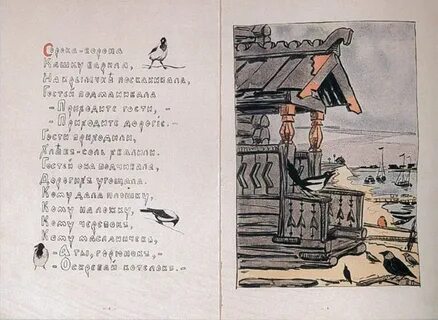 Сорока-ворона
Кашку варила,
На крылечке поскакивала,
Гостей подманивала
- Приходите гости, -
- Приходите дорогіе. -
Гости приходили,
Хлѣб-соль хвалили.
Гостей она подчивала,
Дорогих угощала.
Кому дала плошку,
Кому на ложку,
Кому черепок,
Кому масланичек,
- А ты, горюнок, -
- Оскребай котелок. -